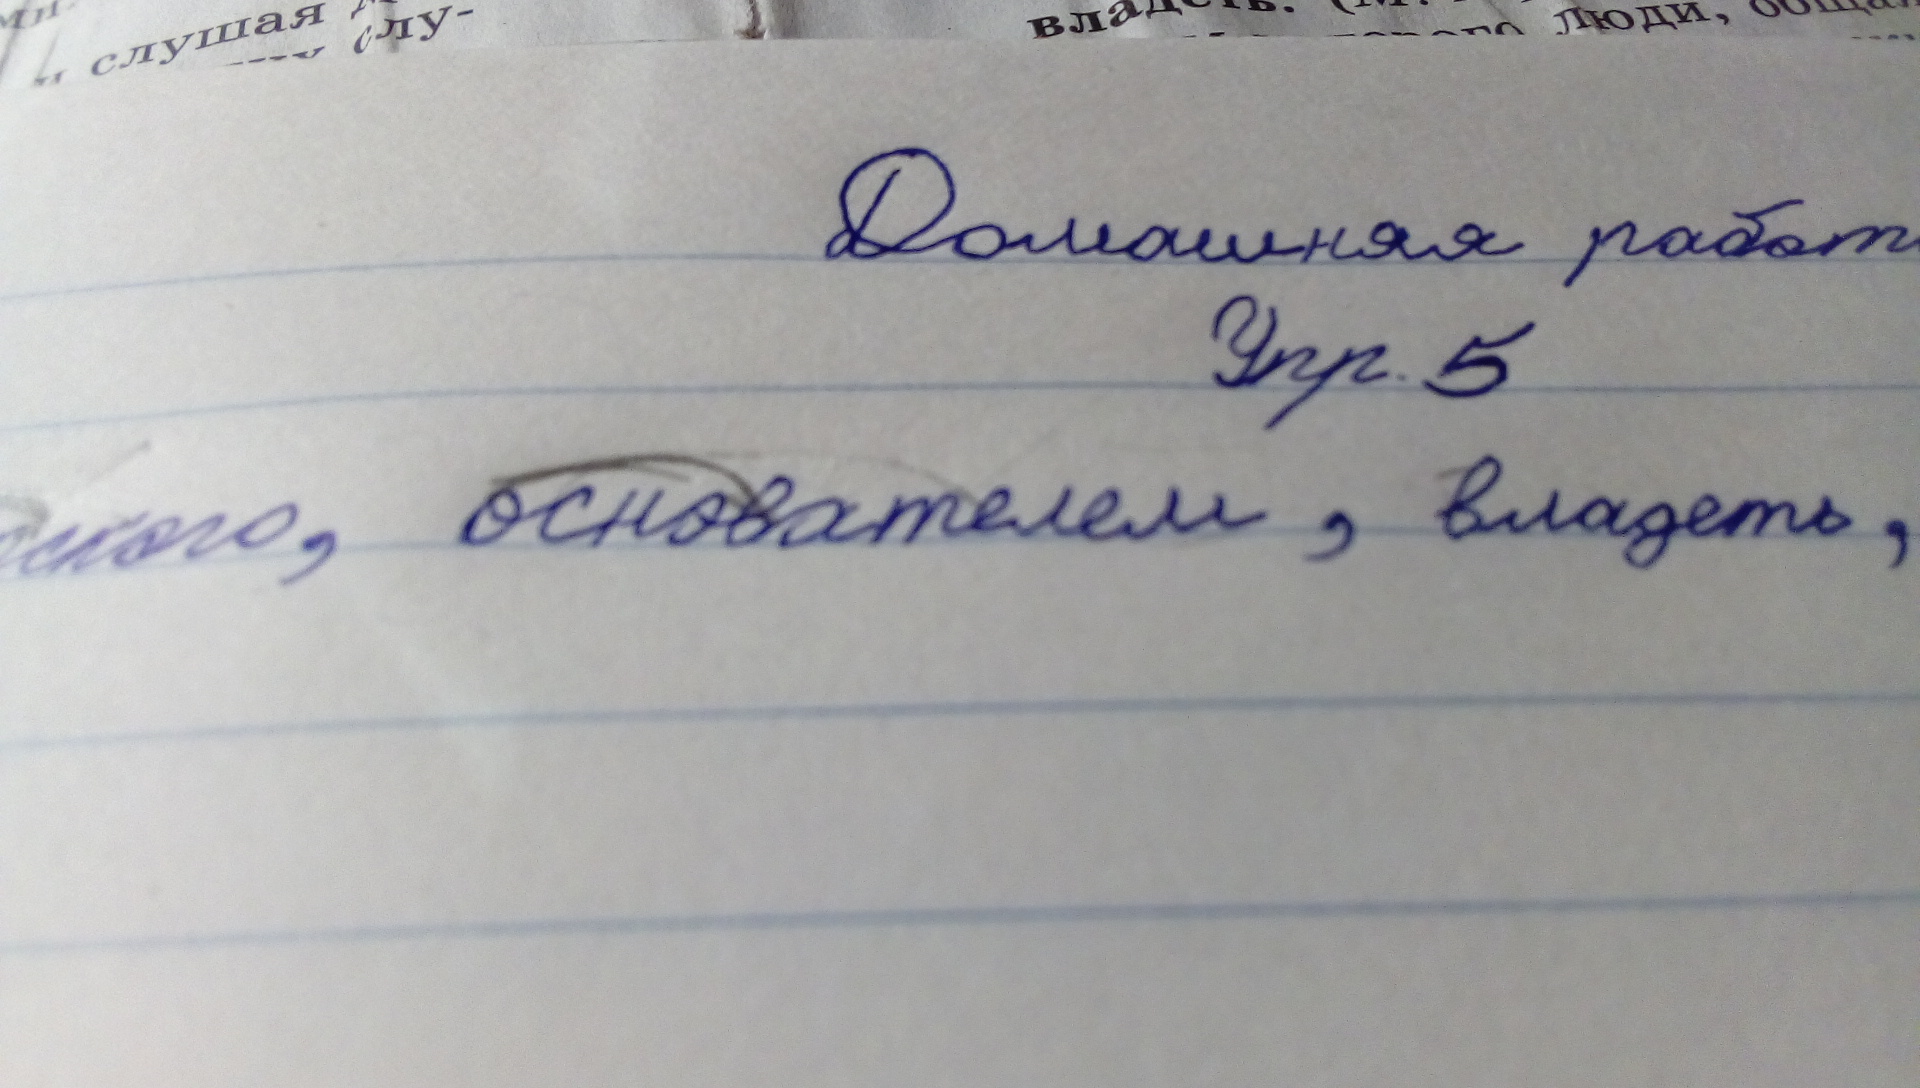 слушая
слу-
владеть. (М.
люди,
Домашняя работ
Упр. 5
ского, основателем, владеть,